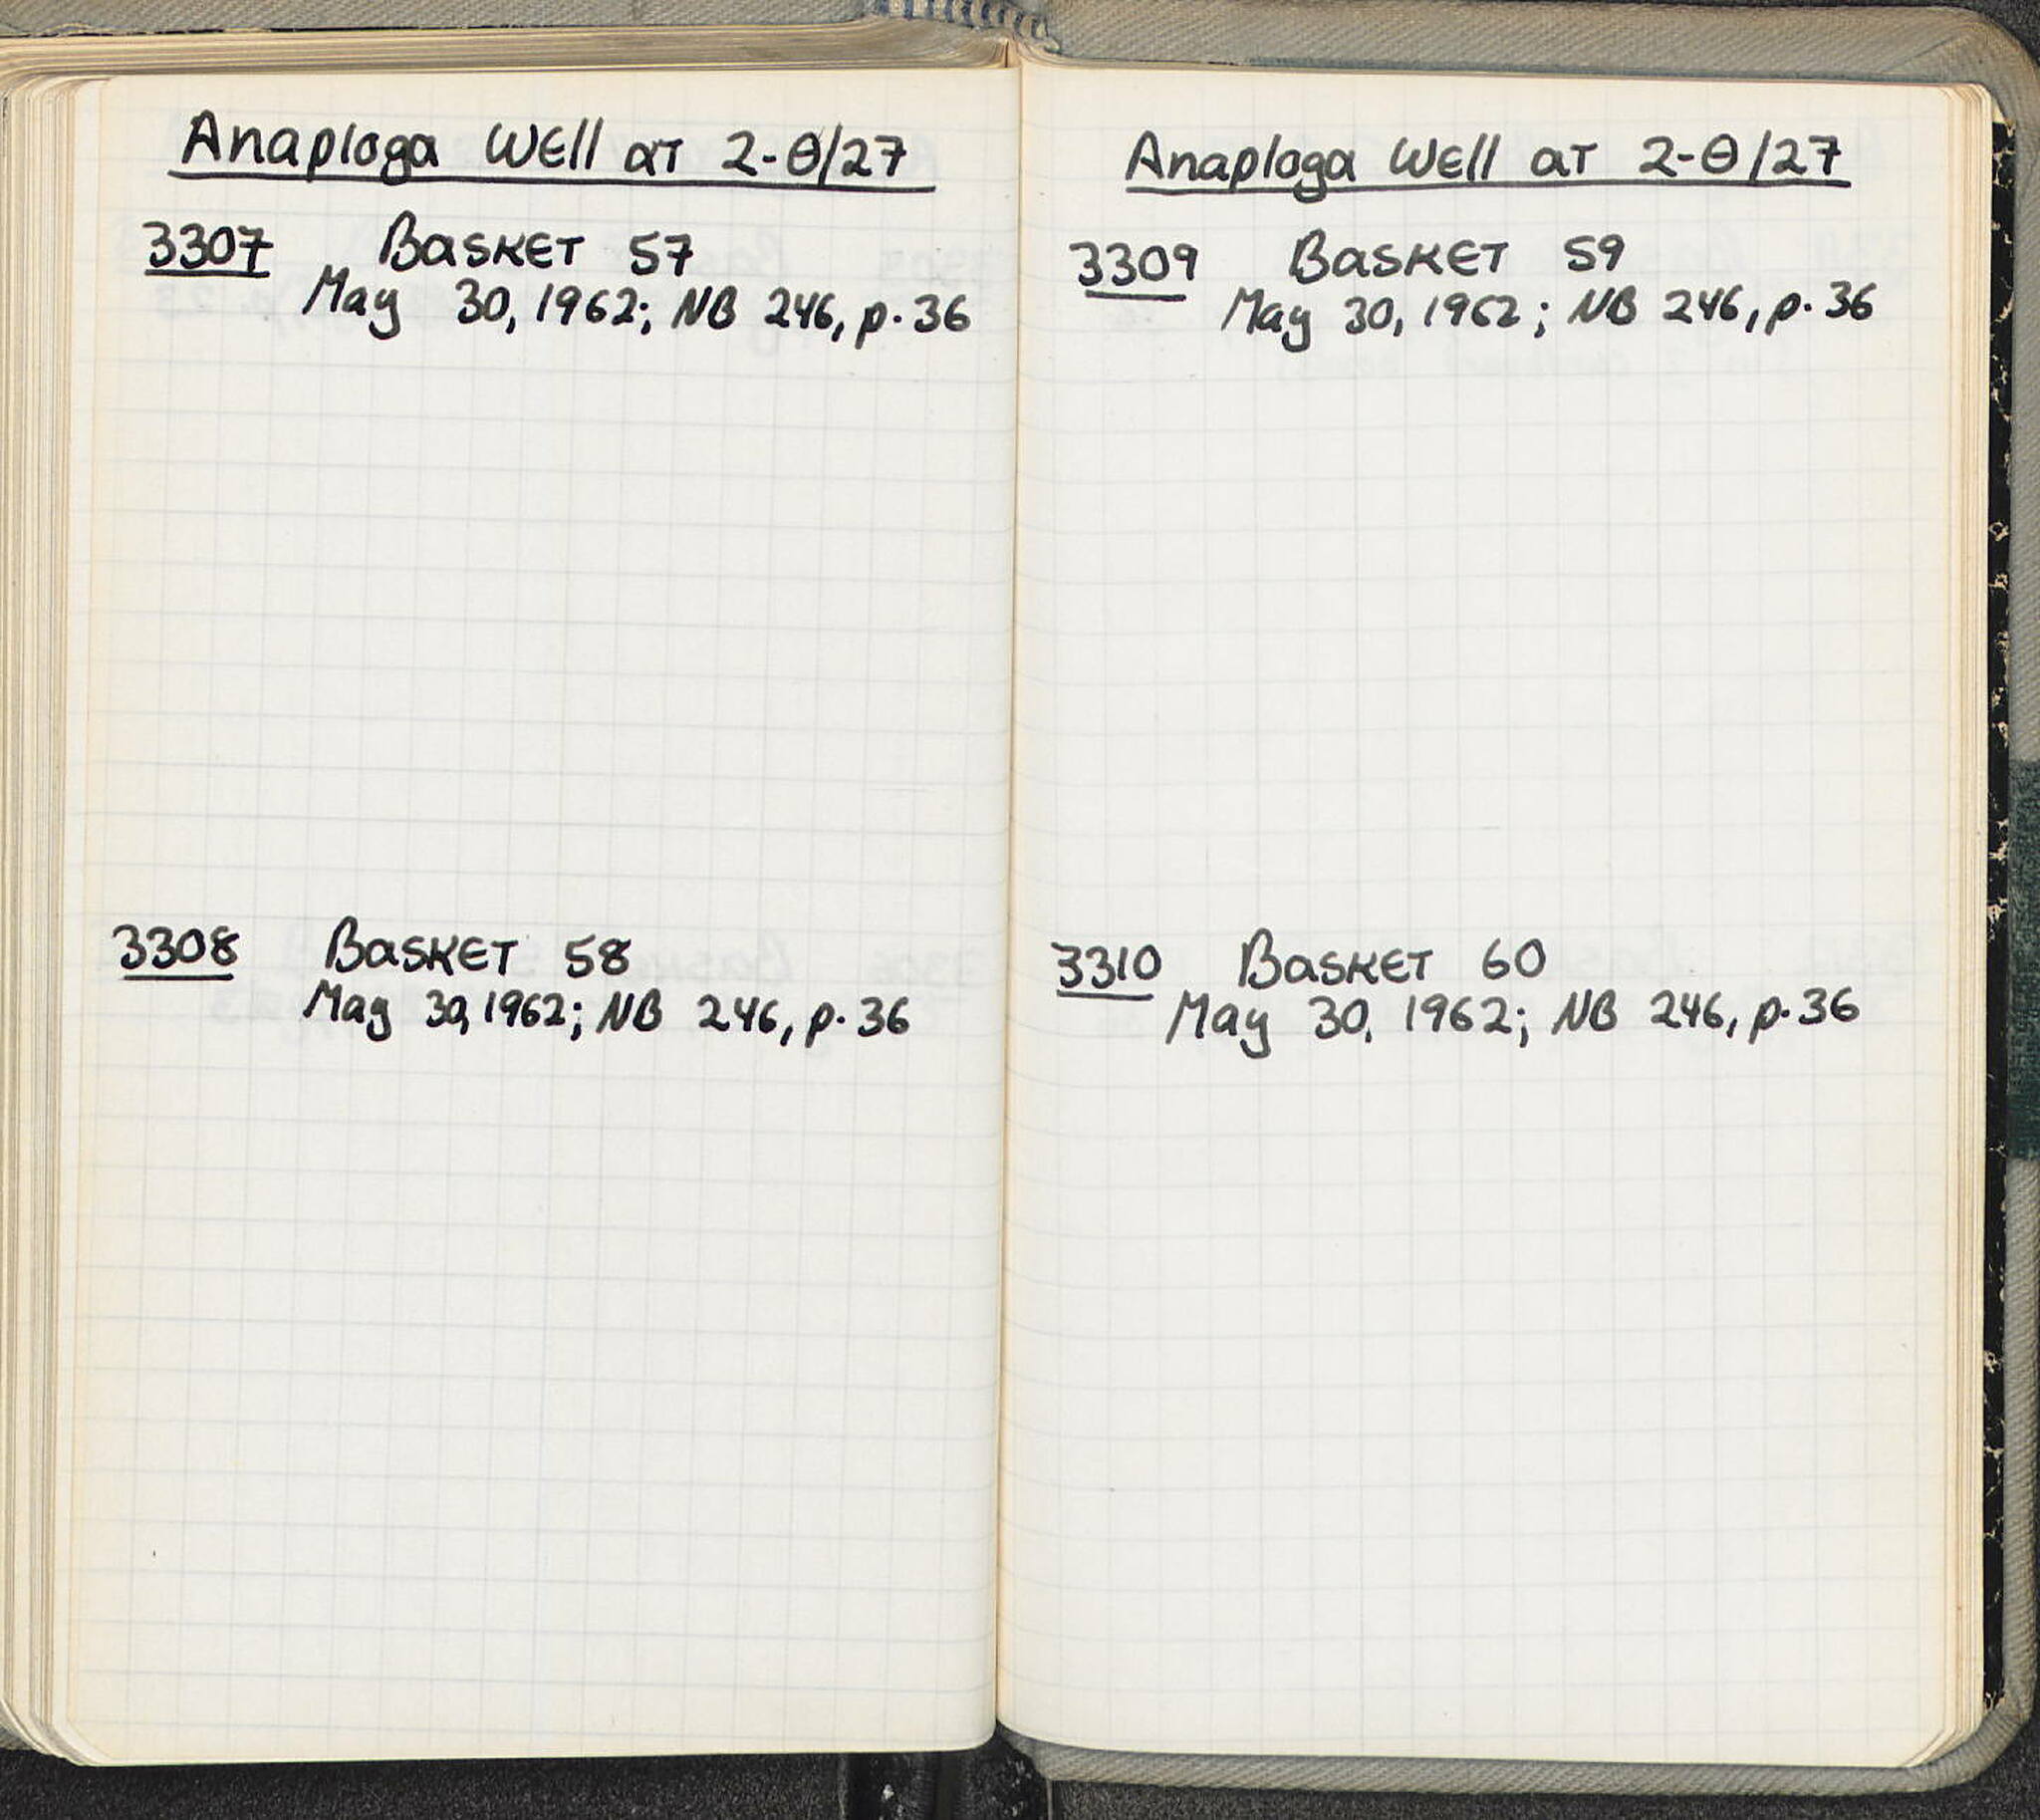 Anaploga Well at 2-Θ/27
3307 Basket 57
May 30, 1962; NB 246, p. 36
3308 Basket 58
May 30, 1962; NB 246, p. 36
Anaploga Well at 2-Θ/27
3309 Basket 59
May 30, 1962; NB 246, p. 36
3310 Basket 60
May 30, 1962; NB 246, p. 36